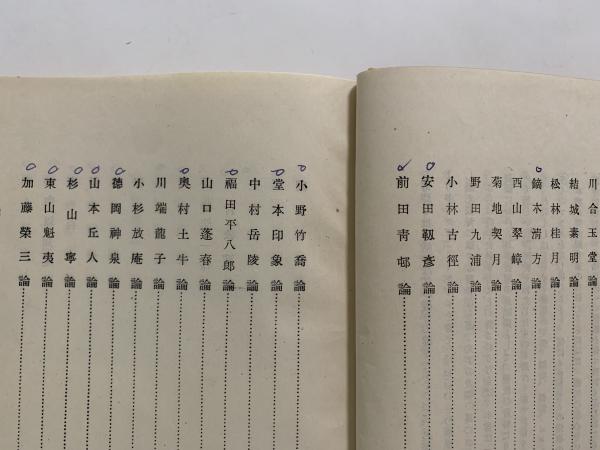 川合玉堂論
結城素明論
松林桂月論
鏑木淸方論
西山翠嶂論
菊地契月論
野田九浦論
小林古徑論
安田靱彦論
前田靑邨論
小野竹喬論
堂本印象論
中村岳陵論
福田平八郎論
山口蓬春論
奥村土牛論
川端龍子論
小杉放庵論
德岡神泉論
山本丘人論
杉山寧論
東山魁夷論
加藤榮三論